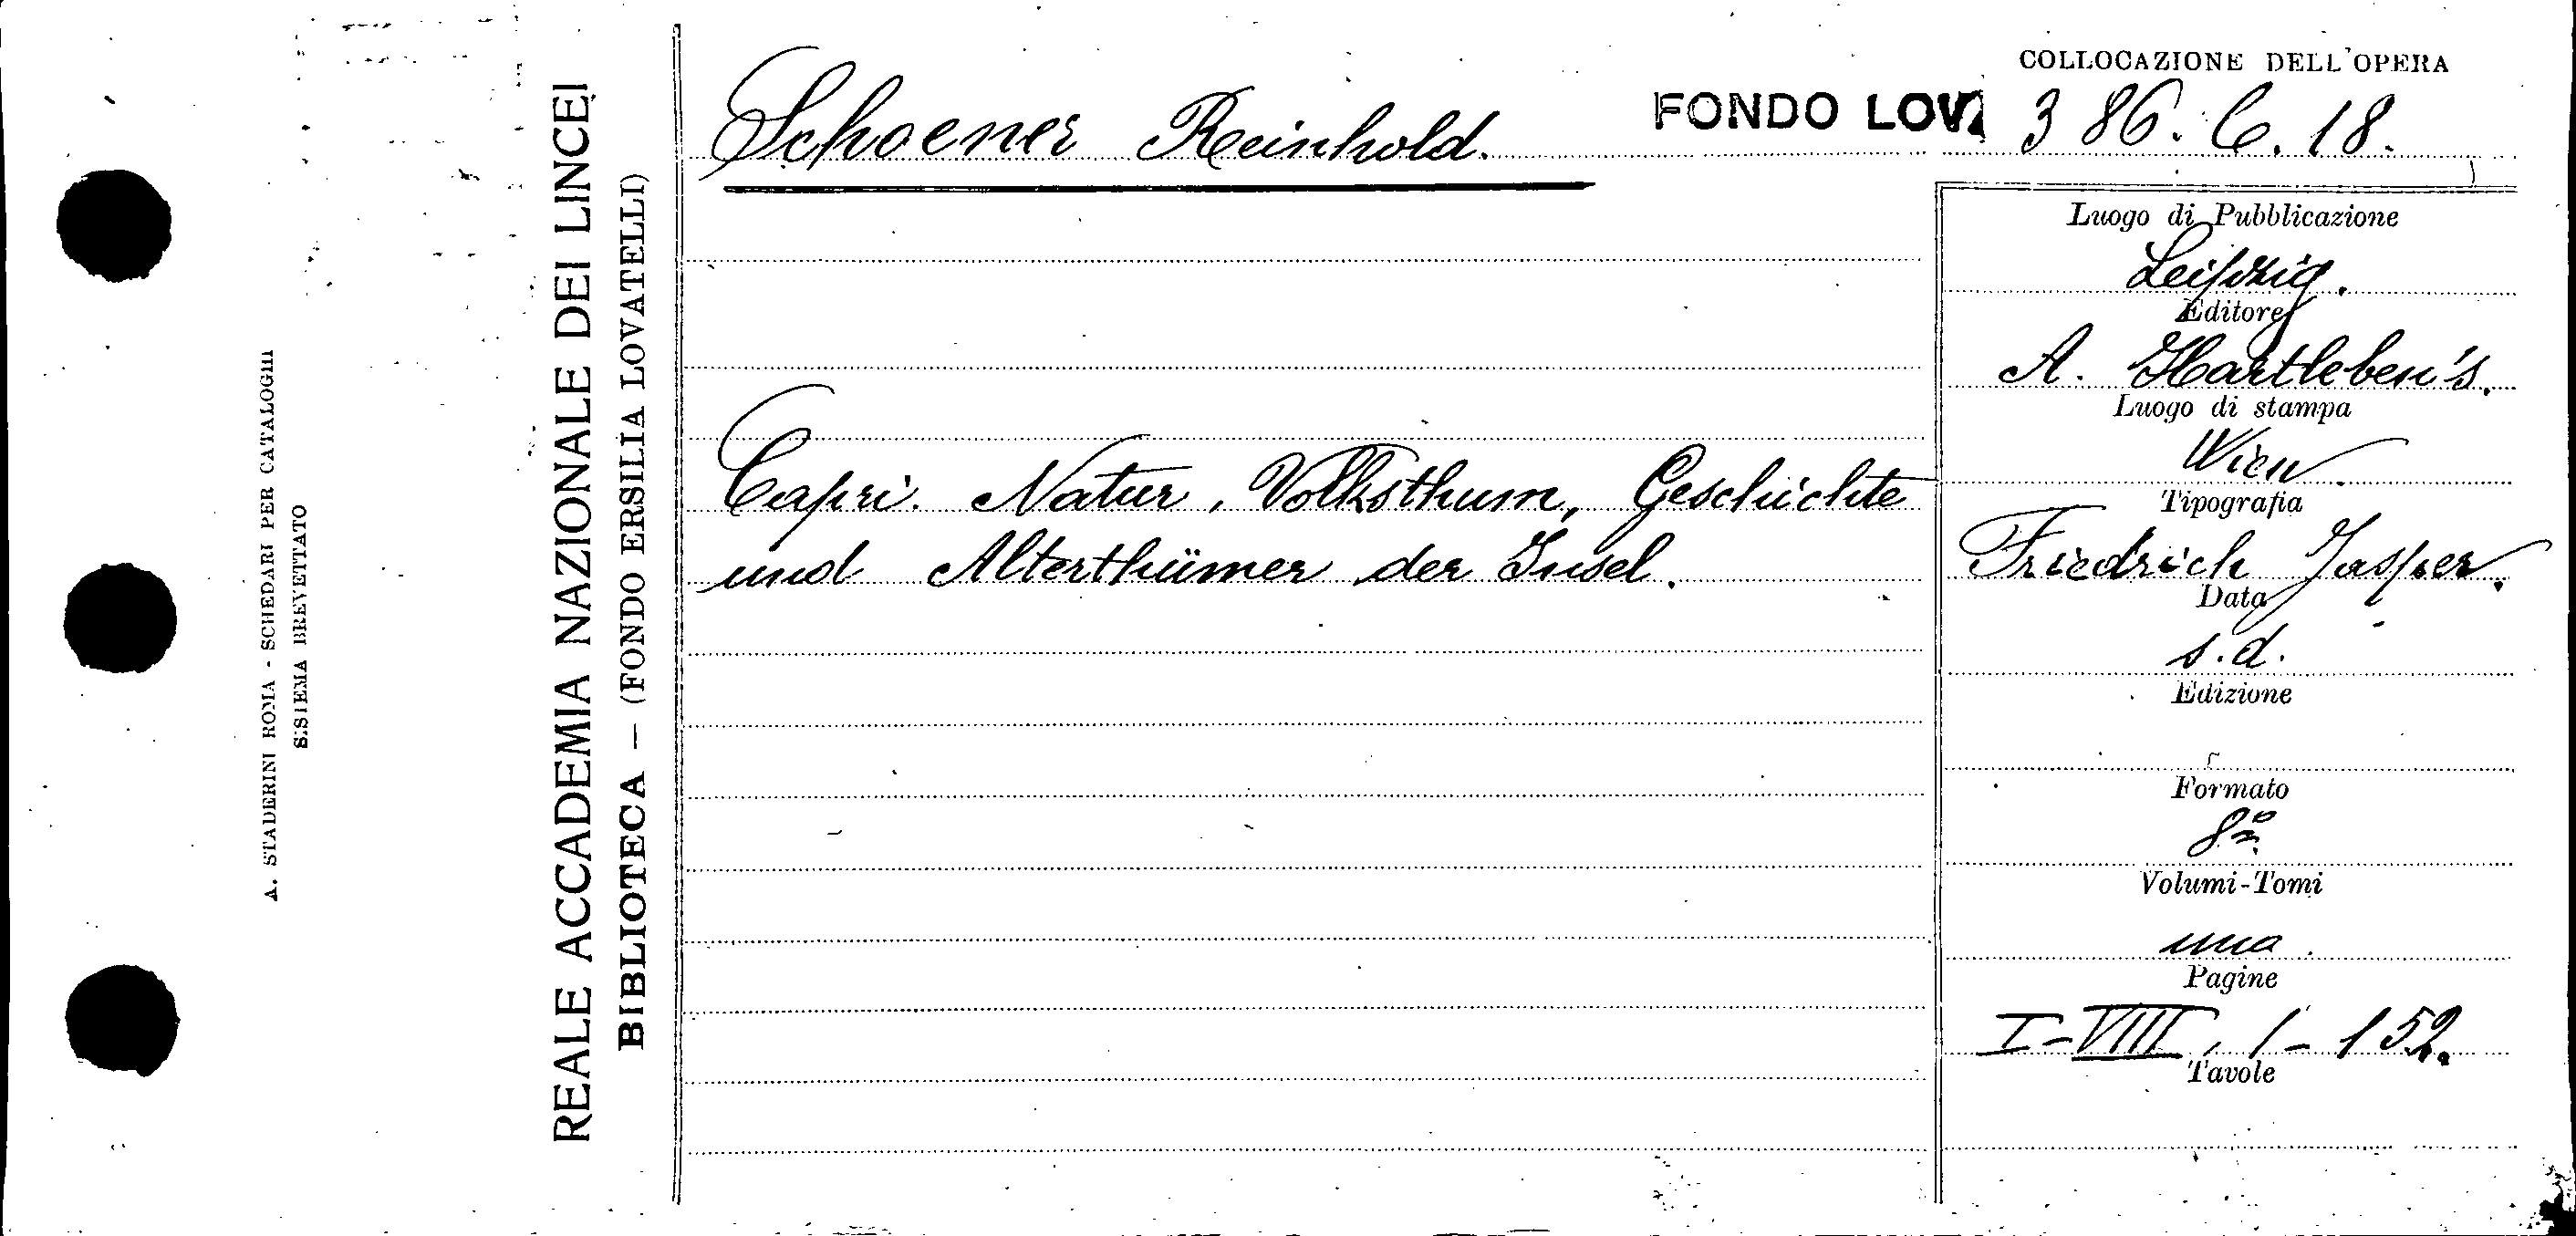 A. STADERINI ROMA - SCHEDARI PER CATALOGHI
SISTEMA BREVETTATO
REALE ACCADEMIA NAZIONALE DEI LINCEI
BIBLIOTECA — (FONDO ERSILIA LOVATELLI)
COLLOCAZIONE DELL'OPERA
Schoener Reinhold. FONDO LOV. 386. C. 18.
Capri. Natur, Volksthum, Geschichte
und Alterthümer der Insel.
Luogo di Pubblicazione
Leipzig.
Editore
A. Hartleben's.
Luogo di stampa
Wien.
Tipografia
Friedrich Jasper.
Data
s.d.
Edizione
Formato
8º
Volumi-Tomi
uno.
Pagine
I-VIII, 1-152.
Tavole